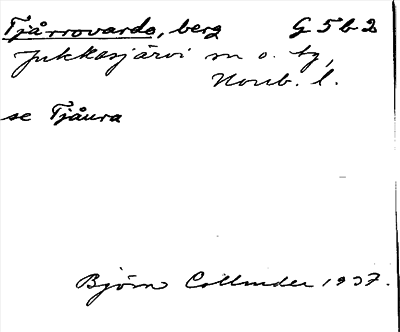 Tjårrovardo, berg G 5 b 2
Jukkasjärvi sn o. tg,
Norrb. l.
se Tjåura
Björn Collinder 1937.